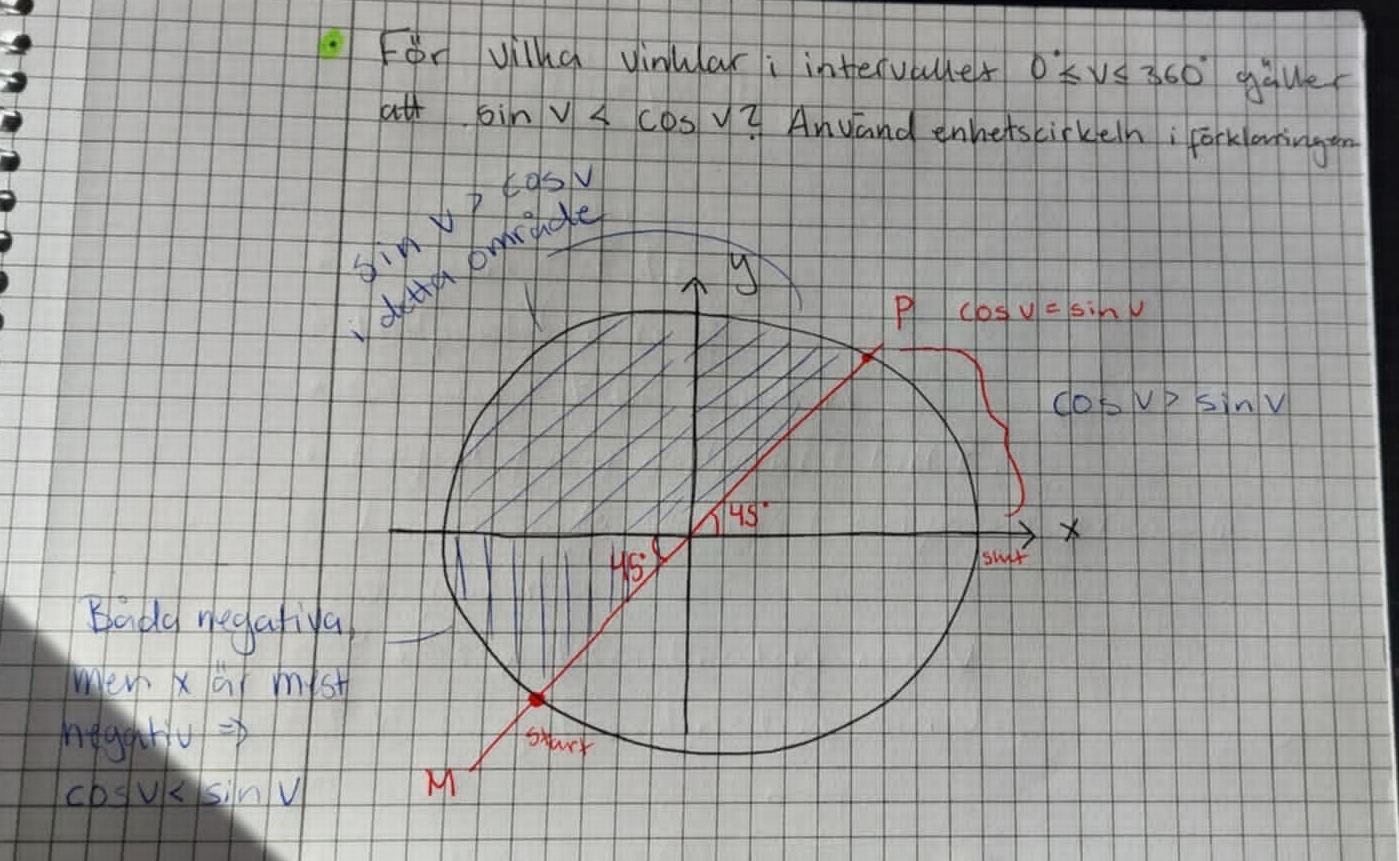 För vilka vinklar i intervallet 0° ≤ v ≤ 360° gäller
att sin v < cos v? Använd enhetscirkeln i förklaringen
sin v > cos v
i detta område
y
P cos v = sin v
cos v > sin v
45°
x
45°
slut
Båda negativa,
men x är mest
negativ ⇒
cos v < sin v
start
M